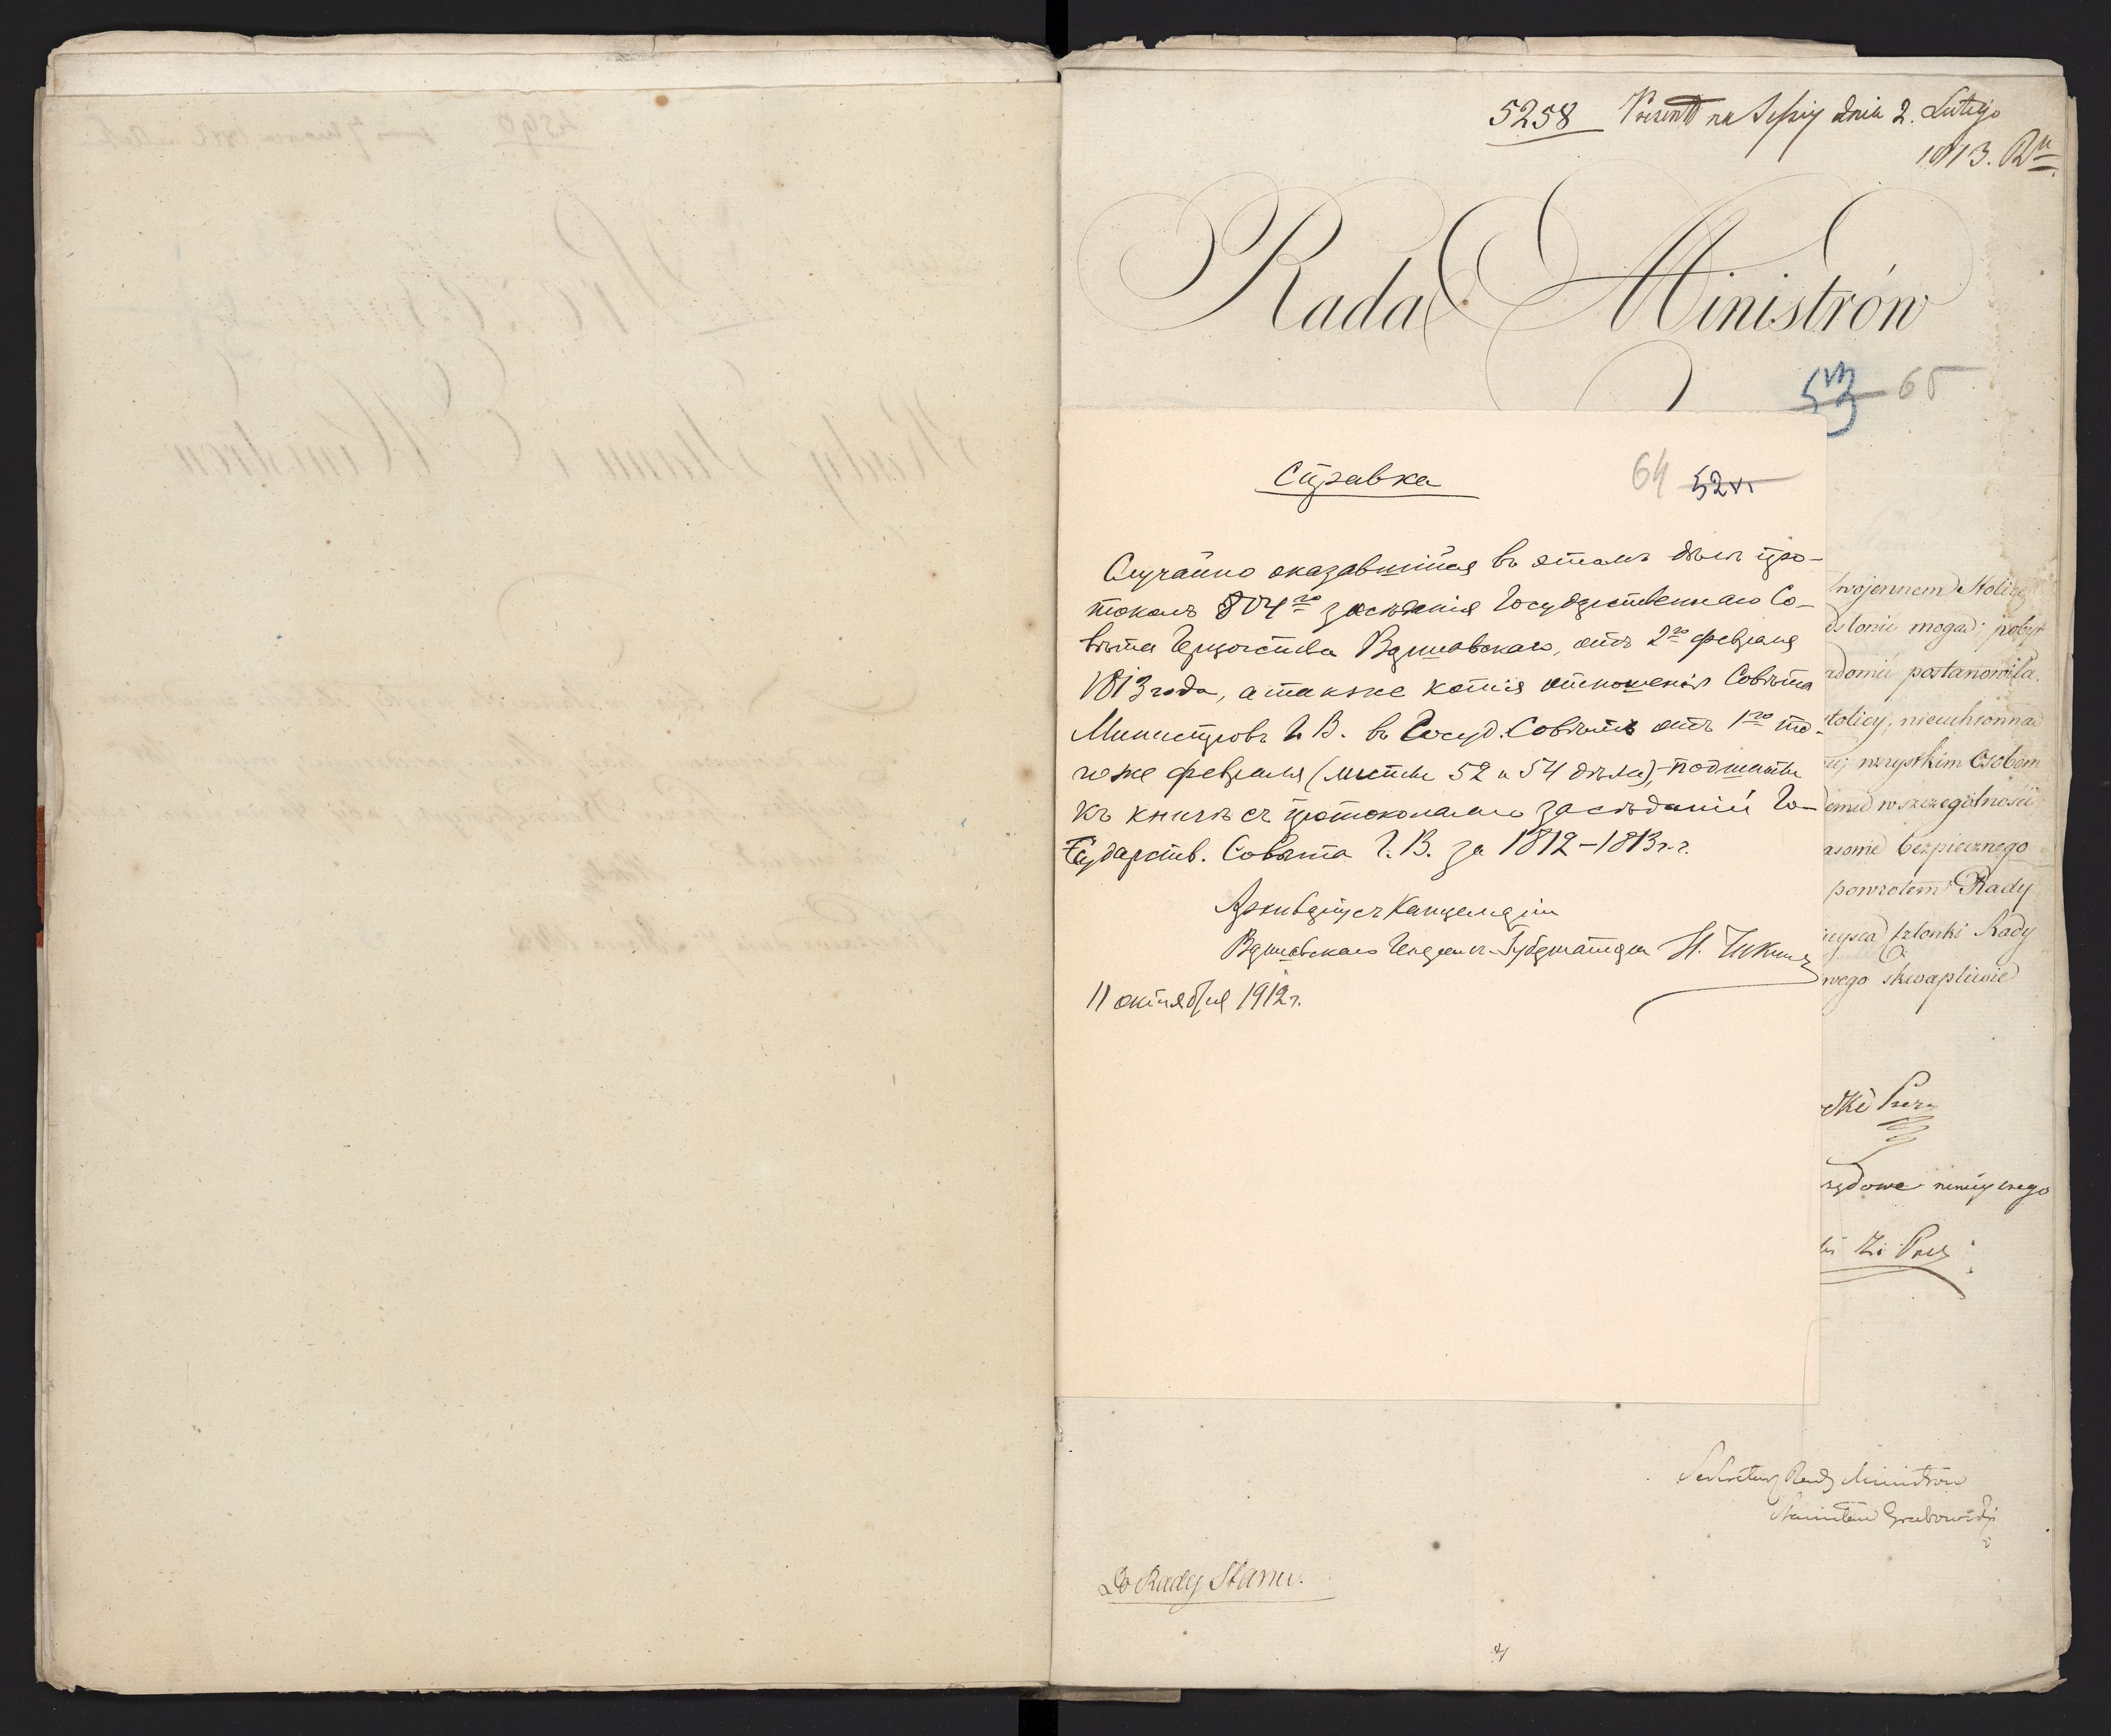 5258 Present na Sessyi dnia 2. Lutego
1813. Ru
Rada Ministrów
53 65
Справка
64 52 VI
Случайно оказавшійся въ этомъ дѣлѣ про-
токолъ 804го засѣданія Государственнаго Со-
вѣта Герцогства Варшавскаго, отъ 2го февраля
1813 года, а также копія отношенія Совѣта
Министровъ Г. В. въ Госуд. Совѣтъ отъ 1го то-
го же февраля (листы 52 и 54 дѣла), подшиты
къ книгѣ съ протоколами засѣданій Го-
сударств. Совѣта Г. В. за 1812-1813 г.г.
Архиваріусъ Канцеляріи
Варшавскаго Генералъ-Губернатора Н.
11 октября 1912 г.
wojennem Stolicy
mogąc; pobyt
postanowiła.
stolicy, nieuchronna
wszystkim Osobom
w szczególności
bezpiecznego
powrotem Rady
członki Rady
skwapliwie
ninieyszego
Sekretarz Rady Ministrów
Stanisław Grabowski
Do Rady Stanu.